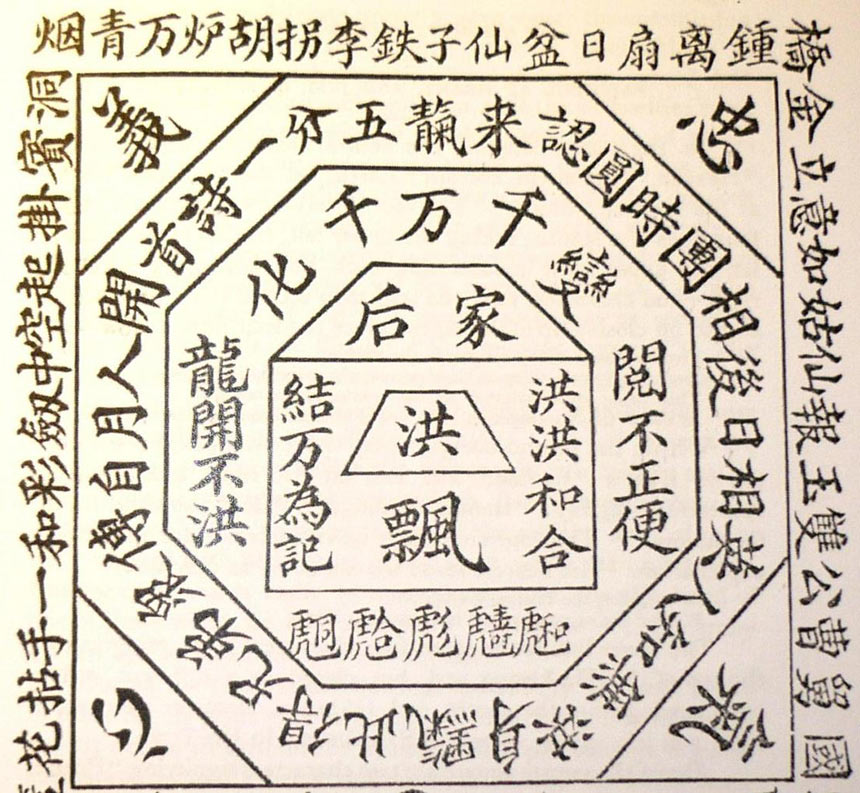 烟青万炉胡拐李鉄子仙盆日扇离鍾
橋金立意如姑仙報玉雙公曹舅國
洞賓掛起空中劔彩和一手拈花
義
恕
心
五
分
一
首詩
開
人
月
自
傳
来
認
圓
時
團
相
後
日
相
英
人
無
身
此
得
兄弟
千万千
化
變
后家
龍開不洪
閲不正便
結万為記
洪洪和合
洪
飄